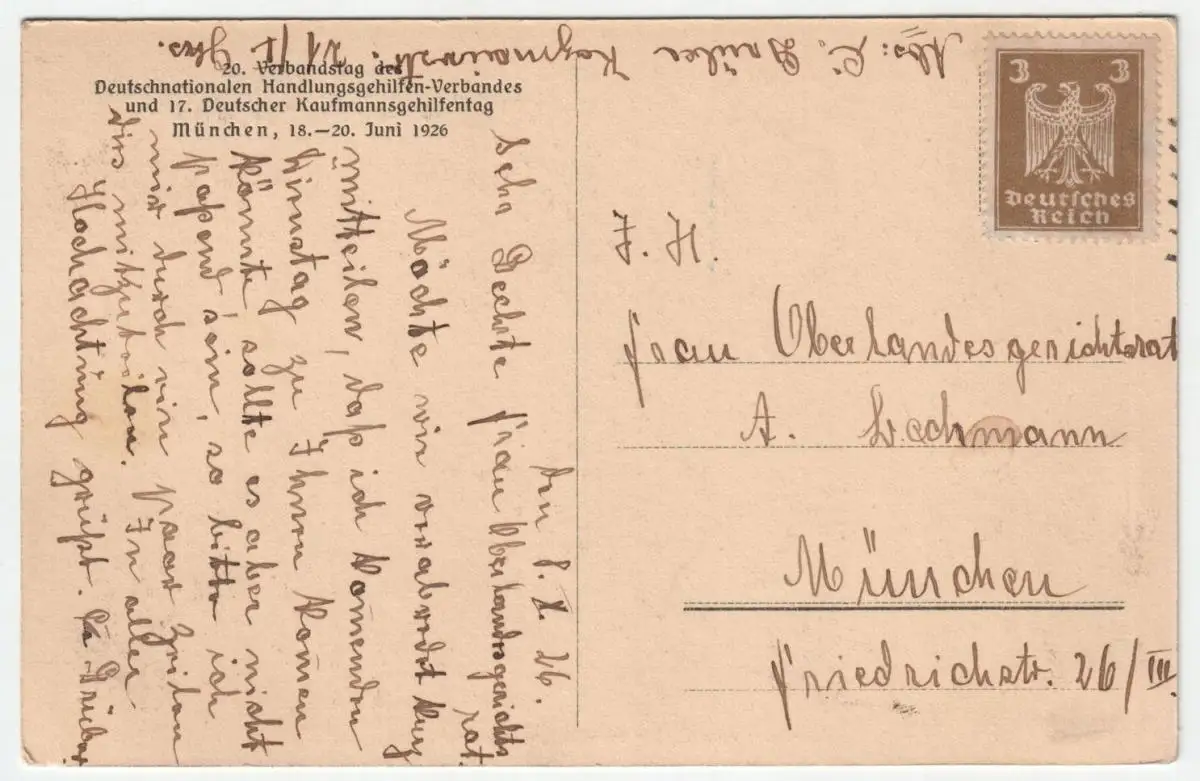 20. Verbandstag des
Deutschnationalen Handlungsgehilfen-Verbandes
und 17. Deutscher Kaufmannsgehilfentag
München, 18.–20. Juni 1926
Abs: L.
21/I
3 3
Deutsches
Reich
F. H.
Frau Oberlandesgerichtsrat
A.
München
Friedrichstr. 26/III
den 8. X. 26.
Sehr Frau Oberlandsgerichts
rat.
Möchte wir verabredet kurz
mitteilen, daß ich komenden
Dinstag zu Ihnen komen
könnte sollte es aber nicht
paßend sein, so bitte ich
mir durch ein paar Zeilen
dies mitzuteilen. In aller
Hochachtung grüßt.